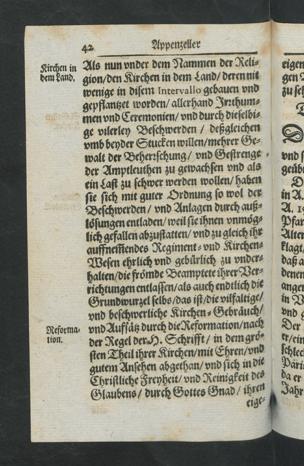 42 Appenzeller
Kirchen in
dem Land.
Als nun vnder dem Nammen der Reli-
gion/den Kirchen in dem Land/deren nit
wenige in disem Intervallo gebauen und
gepflantzet worden/ allerhand Irrthum-
men und Ceremonien/und durch dieselbi-
ge vilerley Beschwerden/ deßgleichen
vmb beyder Stucken willen/mehrere Ge-
walt der Beherrschung/ und Gestrenge
der Amptleuthen zu gewachsen und als
ein Last zu schwer werden wollen/ haben
sie sich mit guter Ordnung so wol der
Beschwerden/ und Anlagen durch auß-
lösungen entladen/weil sie ihnen vnmög-
lich gefallen abzustatten/ und zu gleich ihr
auffnemmendes Regiment- und Kirchen-
Wesen ehrlich und gebürlich zu vnder-
halten/die frömde Beamptete ihrer Ver-
richtungen entlassen/als auch endtlich die
Grundwurzel selbs/das ist/die vilfaltige/
und beschwerliche Kirchen-Gebräuch/
und Auffsätz durch die Reformation/nach
der Regel der H. Schrifft/ in dem grö-
sten Theil ihrer Kirchen/mit Ehren/und
gutem Ansehen abgethan/und sich in die
Christliche Freyheit/ und Reinigkeit des
Glaubens/ durch Gottes Gnad/ ihren
eige-
Reforma-
tion.